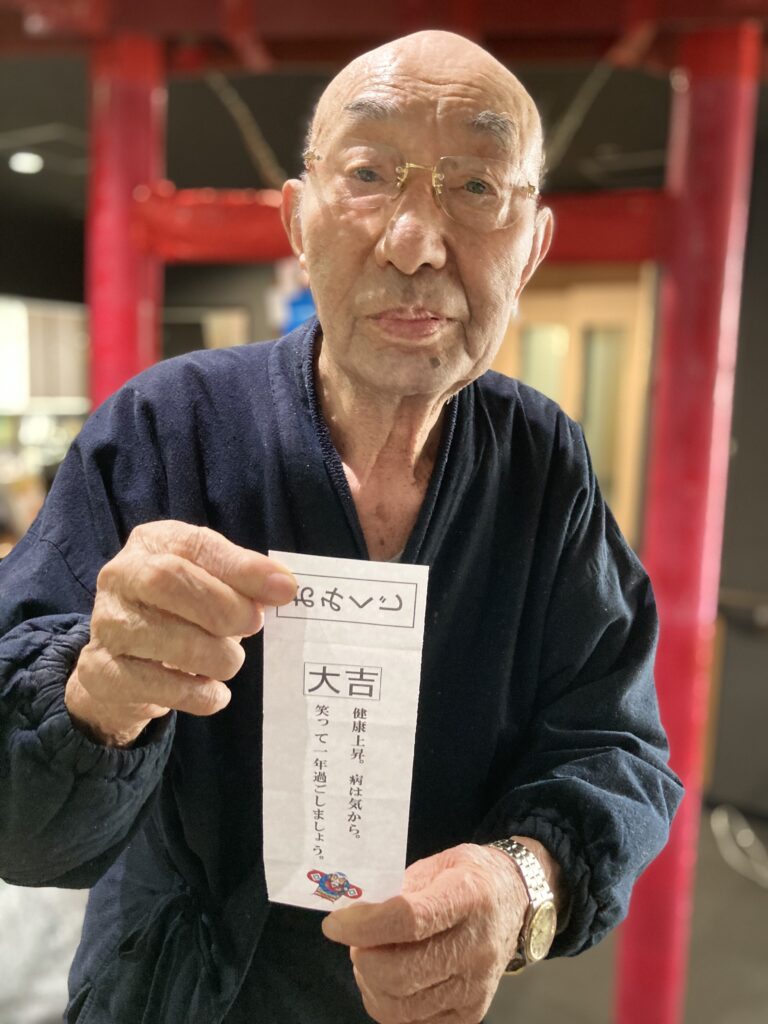 おみくじ
大吉
健康上昇。病は気から。
笑って一年過ごしましょう。